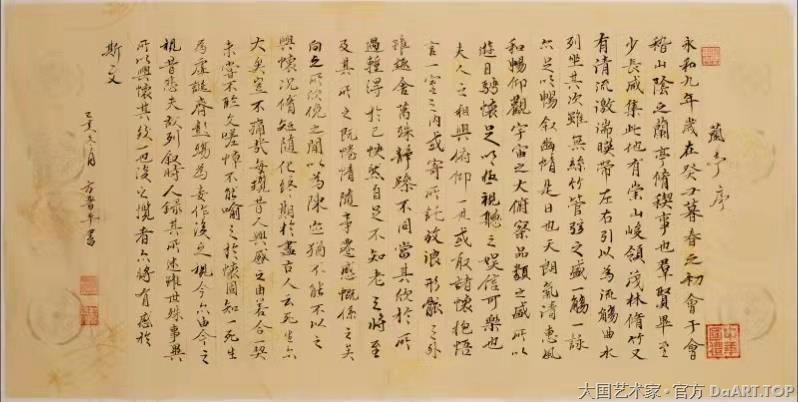 蘭亭序
永和九年歲在癸丑暮春之初會于會
稽山陰之蘭亭脩稧事也羣賢畢至
少長咸集此地有崇山峻領茂林脩竹又
有清流激湍暎帶左右引以為流觴曲水
列坐其次雖無絲竹管弦之盛一觴一詠
亦足以暢敘幽情是日也天朗氣清惠風
和暢仰觀宇宙之大俯察品類之盛所以
遊目騁懷足以極視聽之娛信可樂也
夫人之相與俯仰一世或取諸懷抱悟
言一室之內或寄所託放浪形骸之外
雖趣舍萬殊靜躁不同當其欣於所
遇蹔得於己快然自足不知老之將至
及其所之既惓情隨事遷感慨係之矣
向之所欣俛之間以為陳迹猶不能不以之
興懷況脩短隨化終期於盡古人云死生亦
大矣豈不痛哉每攬昔人興感之由若合一契
未嘗不臨文嗟悼不能喻之於懷固知一死生
為虛誕齊彭殤為妄作後之視今亦由今之
視昔悲夫故列敘時人錄其所述雖世殊事異
所以興懷其致一也後之攬者亦將有感於
斯文
大国艺术家·官方 DaART.TOP